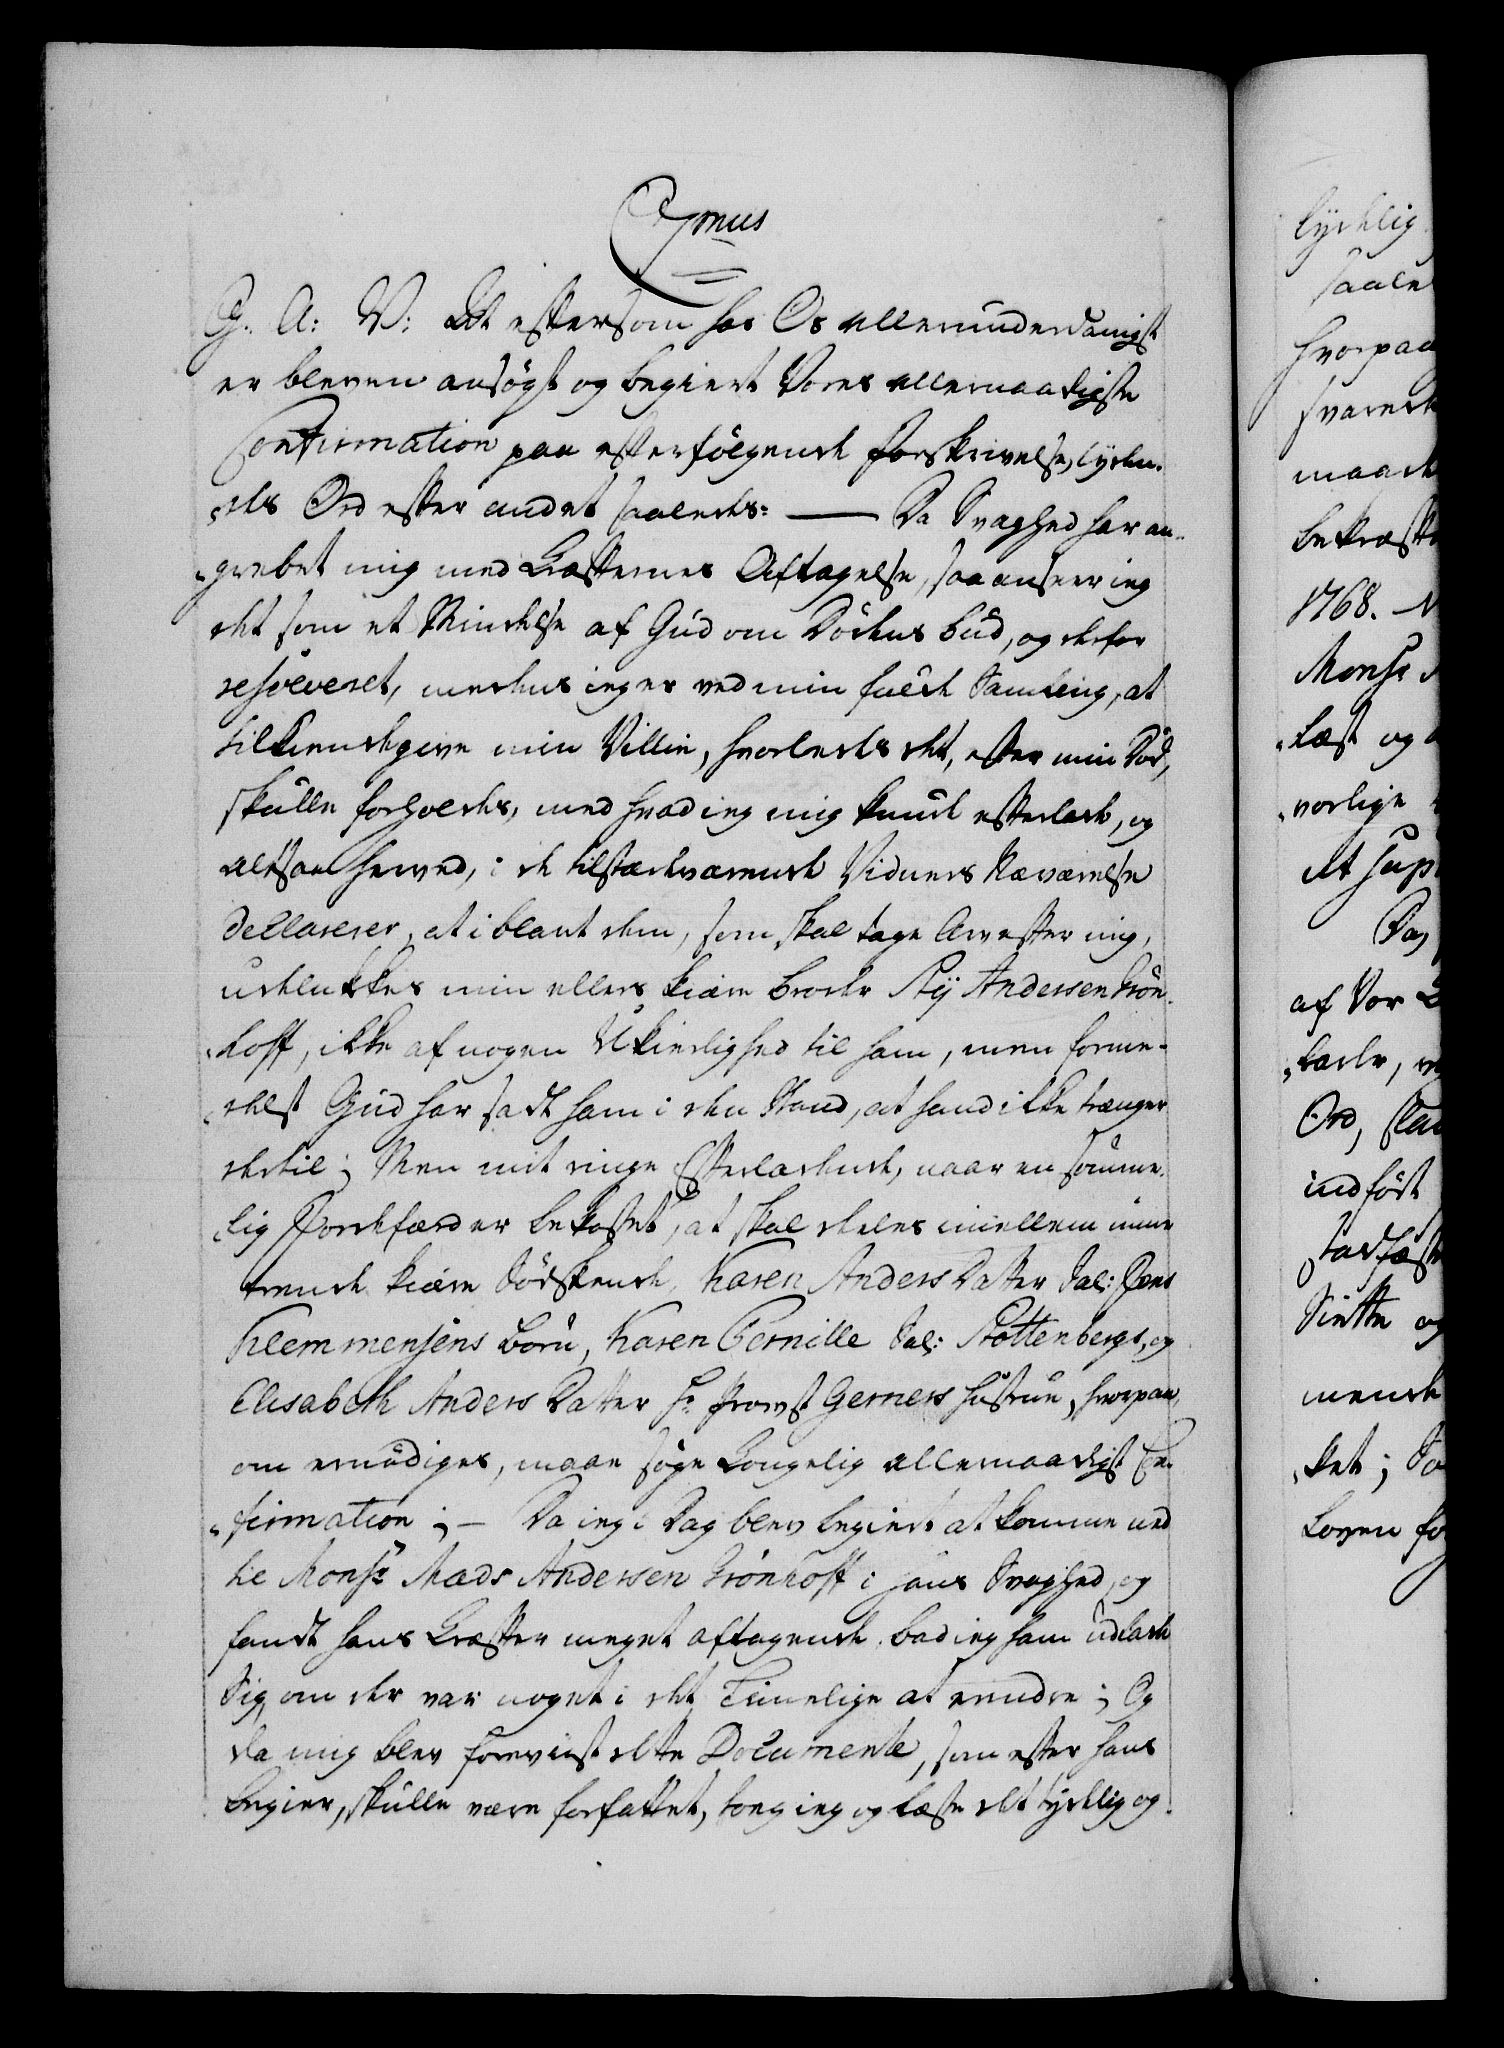 C 7mus
G. A: V: At eftersom hos Os allerunderdanigst
er bleven ansögt og begiert Vores allernaadigste
Confirmation paa efterfölgende Forskrivelse, lyden-
des Ord efter andet saaledes: — Da Svaghed har an-
grebet mig med Kræfternes Aftagelse, saa anseer ieg
det som et Mindelse af Gud om Dödens bud, og derfor
resolveret, medens ieg er ved min fulde Samling, at
tilkiendegive min Villie, hvorledes det, efter min Död,
skulle forholdes, med hvad ieg mig kunde efterlade, og
altsaa herved, i de tilstædeværende Vidners Nærværelse
declarerer, at i blant dem, som skal tage Arv efter mig,
udelukkes min ellers kiære broder Stij Andersen Grön-
hoff, ikke af nogen Ukierlighed til ham, men forme-
delst Gud har sadt ham i den Stand, at hand ikke trænger
dertil; Men mit ringe Efterladende, naar en sömme-
lig Jordefærd er bekostet, at skal deeles imellem mine
trende kiære Södskende, Karen Anders Datter Sal: Jens
Klemmensens börn, Karen Pernille Sal: Stottenbergs, og
Elisabeth Anders Datter Hr. Provst Gerners hustrue, hvorpaa,
om ernödiges, maae söge Kongelig allernaadigst Con-
firmation; – Da ieg i Dag blev begiert at komme ned
til Monsr Mads Andersen Grönhoff i hans Svaghed, og
fandt hans Kræfter meget aftagende, bad ieg ham udlade
Sig, om der var noget i det Timelige at erindre; Og
da mig blev foreviist dette Documente, som efter hans
begier, skulle være forfattet, tog ieg og læste det tydelig og
lydelig
saale
hvorpaa
svarede
maade
bekræfte
1768.
Monsr
læst og
vorlige
at sup
Da,
af Vor
Ord,
indfört
stadfæste
Siette og
mende
ket; So
Loven fo